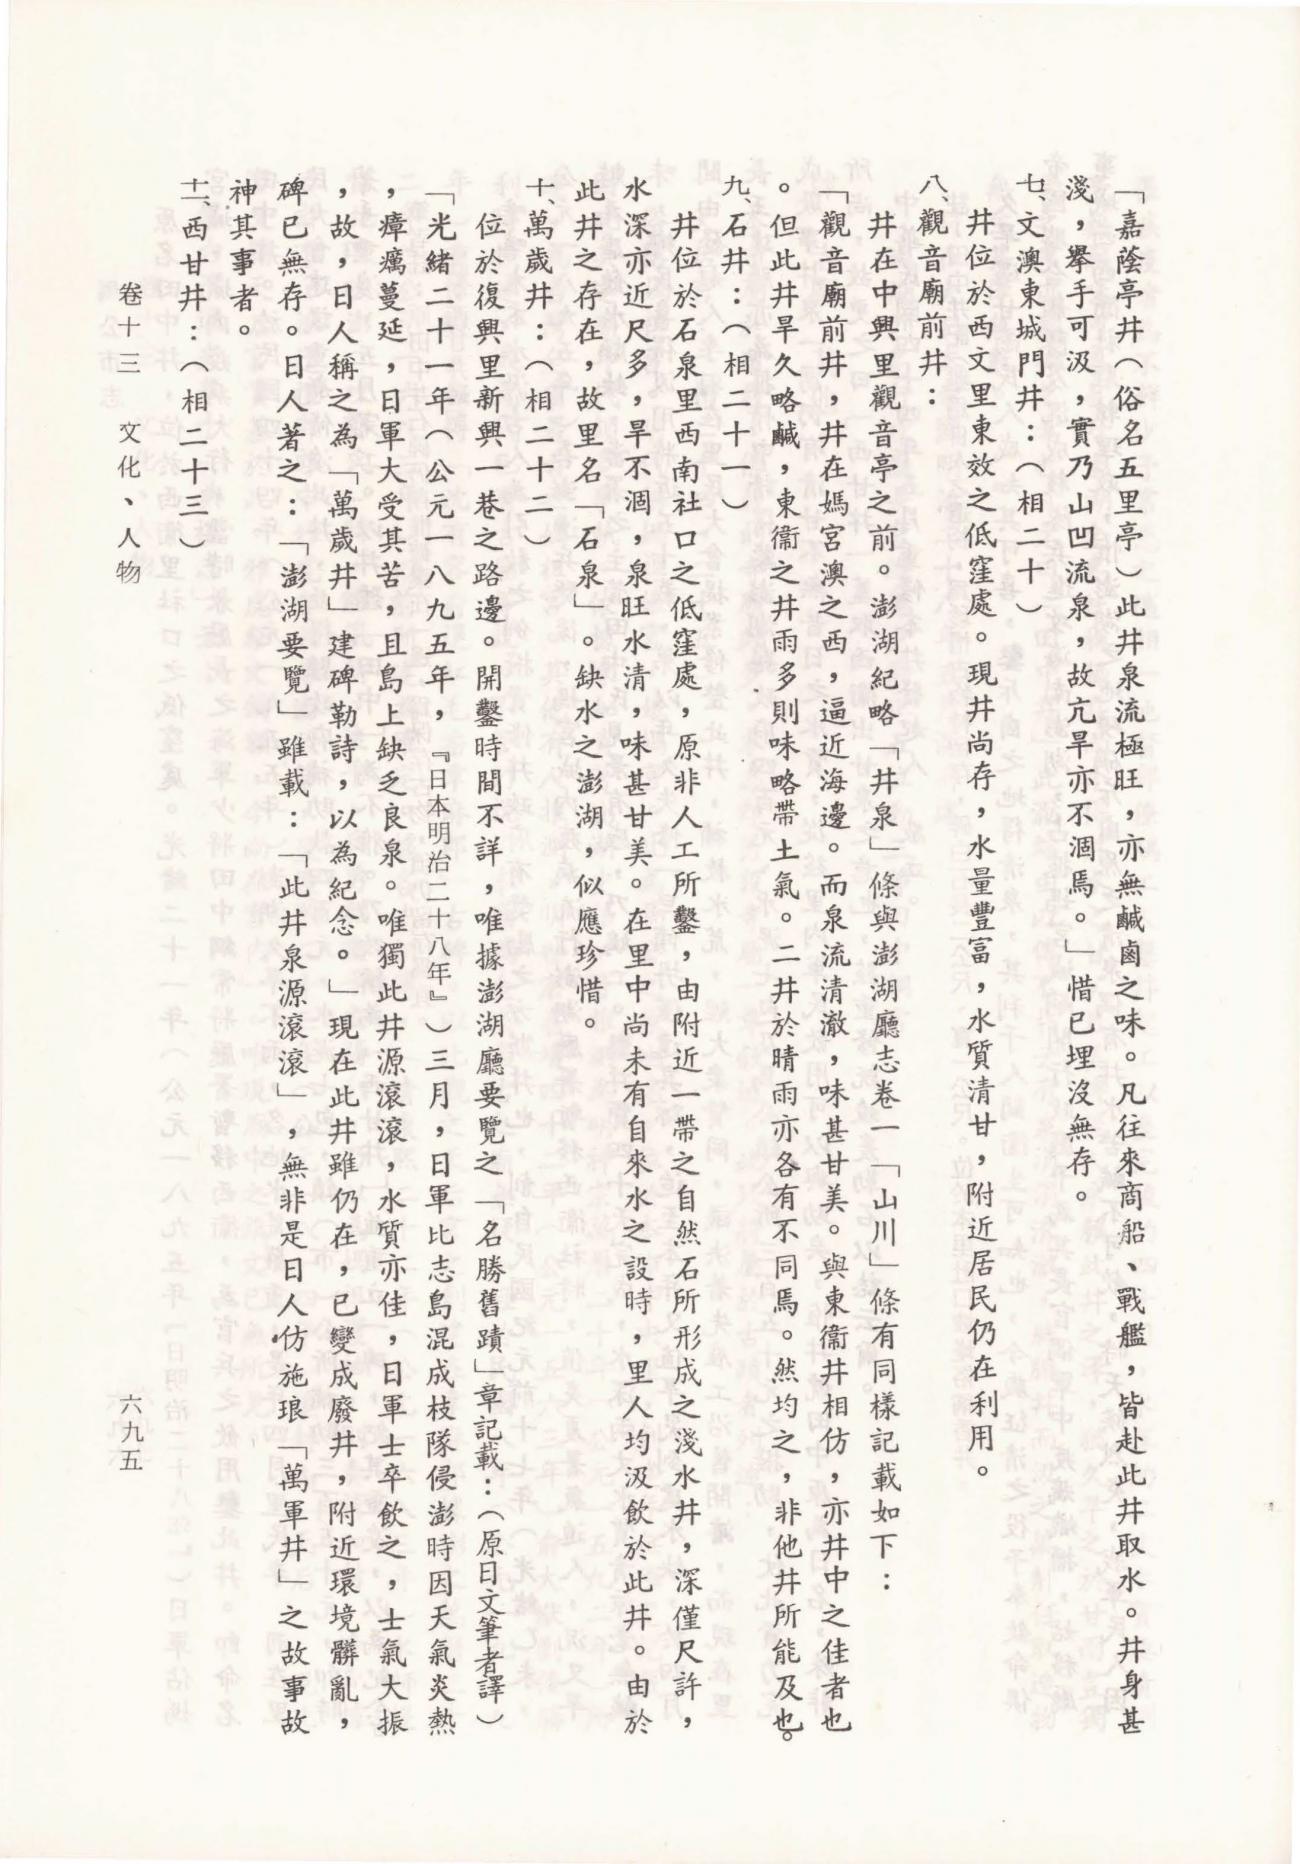 「嘉蔭亭井(俗名五里亭)此井泉流極旺,亦無鹹鹵之味。凡往來商船、戰艦,皆赴此井取水。井身甚
淺,擧手可汲,實乃山凹流泉,故亢旱亦不涸焉。」惜已埋沒無存。
七、文澳東城門井:(相二十)
井位於西文里東效之低窪處。現井尚存,水量豐富,水質清甘,附近居民仍在利用。
八、觀音廟前井:
井在中興里觀音亭之前。澎湖紀略「井泉」條與澎湖廳志卷一「山川」條有同樣記載如下:
「觀音廟前井,井在媽宮澳之西,逼近海邊。而泉流清澈,味甚甘美。與東衞井相仿,亦井中之佳者也
。但此井旱久略鹹,東衞之井雨多則味略帶土氣。二井於晴雨亦各有不同焉。然均之,非他井所能及也。
九、石井:(相二十一)
井位於石泉里西南社口之低窪處,原非人工所鑿,由附近一帶之自然石所形成之淺水井,深僅尺許,
水深亦近尺多,旱不涸,泉旺水清,味甚甘美。在里中尚未有自來水之設時,里人均汲飲於此井。由於
此井之存在,故里名「石泉」。缺水之澎湖,似應珍惜。
十、萬歲井:(相二十二)
位於復興里新興一巷之路邊。開鑿時間不詳,唯據澎湖廳要覽之「名勝舊蹟」章記載:(原日文筆者譯)
「光緒二十一年(公元一八九五年,『日本明治二十八年』)三月,日軍比志島混成枝隊侵澎時因天氣炎熱
,瘴癘蔓延,日軍大受其苦,且島上缺乏良泉。唯獨此井源滾滾滾,水質亦佳,日軍士卒飲之,士氣大振
,故,日人稱之為「萬歲井」建碑勒詩,以為紀念。」現在此井雖仍在,已變成廢井,附近環境髒亂,
碑已無存。日人著之:「澎湖要覽」雖載:「此井泉源滾滾」,無非是日人仿施琅「萬軍井」之故事故
神其事者。
十一、西甘井:(相二十三)
卷十三 文化、人物
六九五